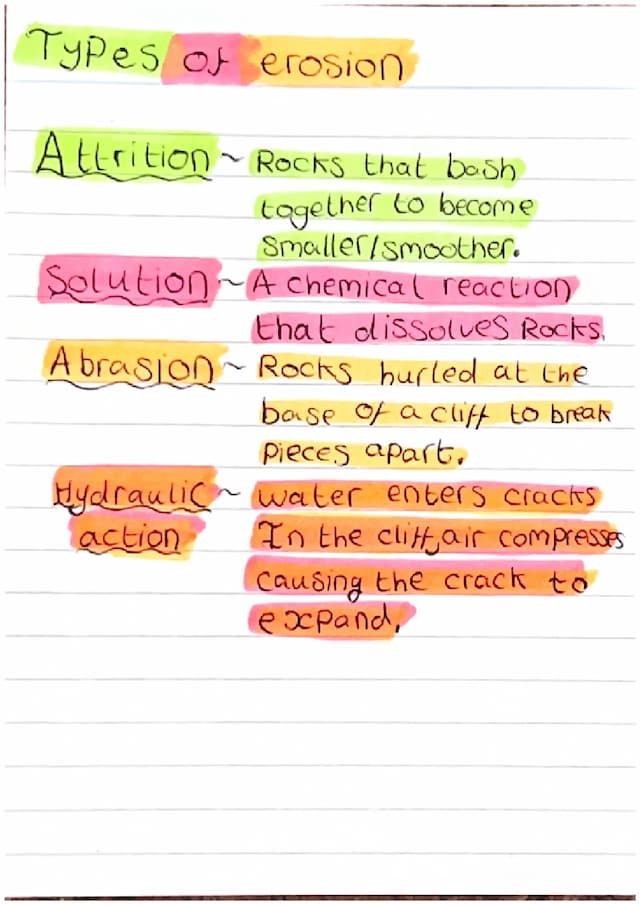 Types of erosion
Attrition ~ Rocks that bash
together to become
smaller/smoother.
Solution ~ A chemical reaction
that dissolves Rocks.
Abrasion ~ Rocks hurled at the
base of a cliff to break
pieces apart.
Hydraulic ~ water enters cracks
action In the cliff, air compresses
causing the crack to
expand.